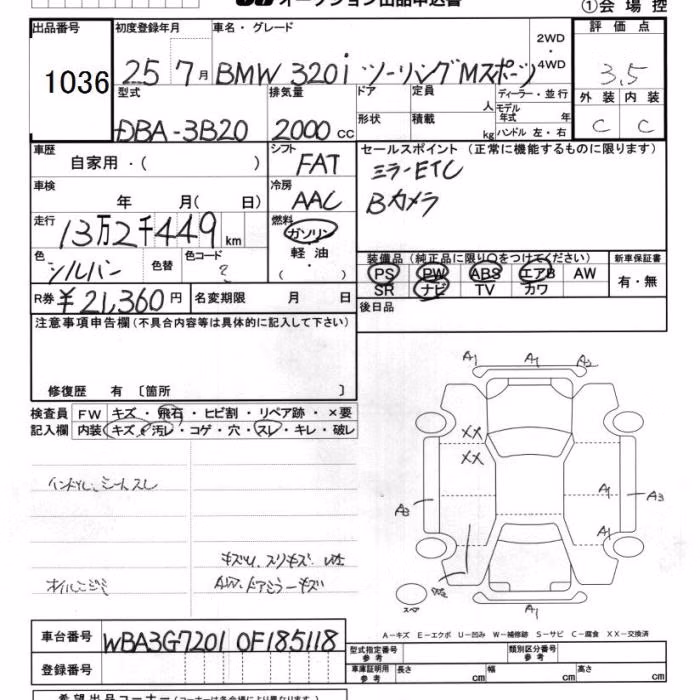 オークション出品申込書
①会場控
出品番号 初度登録年月 車名・グレード 2WD ・ 4WD 評価点
1036 25 7月 BMW 320i ツーリングMスポーツ 3.5
型式 排気量 ドア 定員 人 ディーラー・並行 外装 内装
モデル年式 年
DBA-3B20 2000cc 形状 積載 kg ハンドル 左・右 C C
車歴 自家用・( ) シフト FAT セールスポイント (正常に機能するものに限ります)
ミラーETC
車検 年 月( 日) 冷房 AAC Bカメラ
走行 13万2千449km 燃料 ガソリン
軽油
・( )
色 シルバー 色替 色コード ? 装備品 (純正品に限り○をつけてください) 新車保証書
PS PW ABS エアB AW 有・無
SR ナビ TV カワ
R券 ¥21,360円 名変期限 月 日 後日品
注意事項申告欄(不具合内容等は具体的に記入して下さい)
修復歴 有 〔箇所 〕
検査員 FW キズ・飛石・ヒビ割・リペア跡・×要
記入欄 内装 キズ・汚レ・コゲ・穴・スレ・キレ・破レ
A1 A1 A2
XX
XX
A1
A3 A3
A1
ハンドル、シートスレ
キズU、スリキズ
オイルニジミ AW、ドアミラーキズ
スペア A1
A-キズ E-エクボ U-凹み W-補修跡 S-サビ C-腐食 XX-交換済
車台番号 WBA3G7201 0F185118 型式指定番号 参考 類別区分番号 参考
登録番号 車庫証明用 参考 長さ cm 幅 cm 高さ cm
希望出品コーナー(コーナーは各会場により異なります)